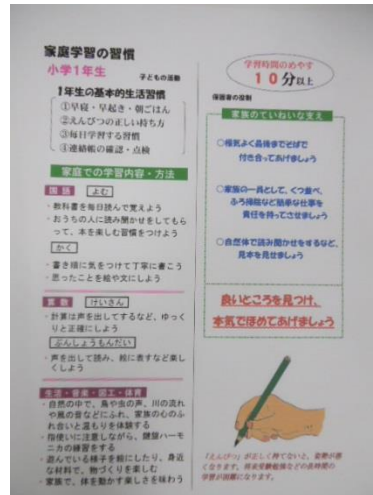 家庭学習の習慣
小学1年生
子どもの活動
1年生の基本的生活習慣
①早寝・早起き・朝ごはん
②えんぴつの正しい持ち方
③毎日学習する習慣
④連絡帳の確認・点検
家庭での学習内容・方法
国語 よむ
・教科書を毎日読んで覚えよう
・おうちの人に読み聞かせをしてもら
って、本を楽しむ習慣をつけよう
かく
・書き順に気をつけて丁寧に書こう
・思ったことを絵や文にしよう
算数 けいさん
・計算は声を出してするなど、ゆっく
りと正確にしよう
ぶんしょうもんだい
・声を出して読み、絵に表すなど楽し
くしよう
生活・音楽・図工・体育
・自然の中で、鳥や虫の声、川の流れ
や風の音などにふれ、家族の心のふ
れ合いと温もりを体験する
・指使いに注意しながら、鍵盤ハーモ
ニカの練習をする
・遊んでいる様子を絵にしたり、身近
な材料で、物づくりを楽しむ
・家族で、体を動かす楽しさを味わう
学習時間のめやす
10分以上
保護者の役割
家族のていねいな支え
○根気よく最後までそばで
付き合ってあげましょう
○家族の一員として、くつ並べ、
ふろ掃除など簡単な仕事を
責任を持ってさせましょう
○自然体で読み聞かせをするなど、
見本を見せましょう
良いところを見つけ、
本気でほめてあげましょう
「えんぴつ」が正しく持てないと、姿勢が悪
くなります。将来受験勉強などの長時間の
学習が困難になります。